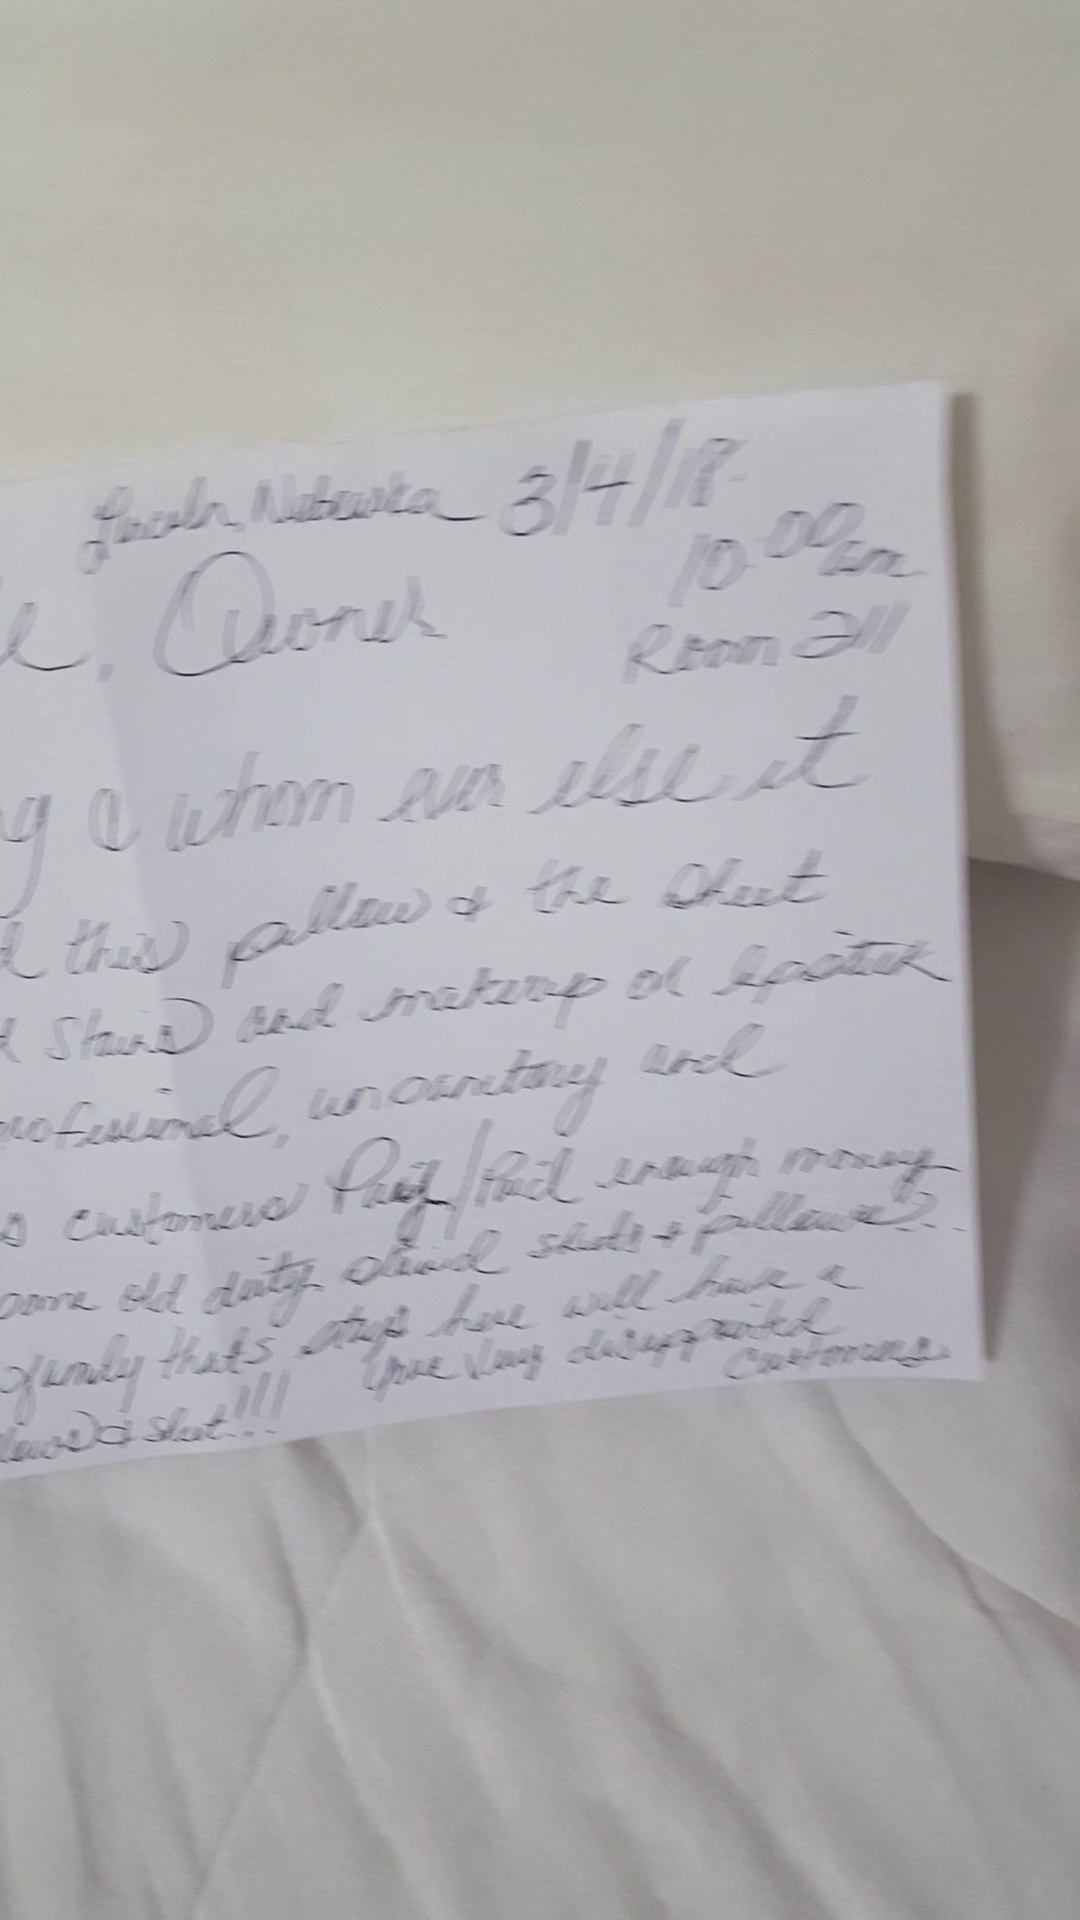 Lincoln, Nebraska 3/4/18
10:00am
Owner
Room 211
& whom ever else it
this pillow & the sheet
stains and makeup or lipstick
unsanitary and
customers Paid/Paid enough money
old dirty stained sheets & pillows?..
family thats stays here will have a
& sheet!!! your very disappointed
customers